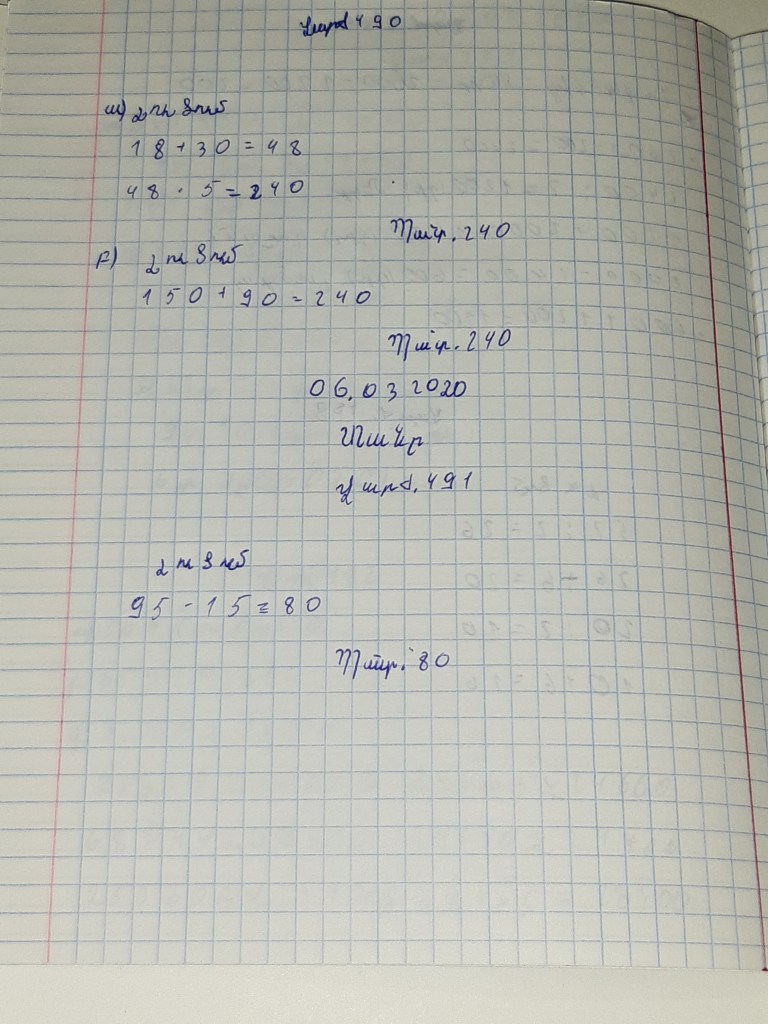 Վարժ 490
ա) Լուծում
18 + 30 = 48
48 · 5 = 240
Պատ. 240
բ) Լուծում
150 + 90 = 240
Պատ. 240
06.03 2020
Տանը
Վարժ. 491
Լուծում
95 - 15 = 80
Պատ. 80